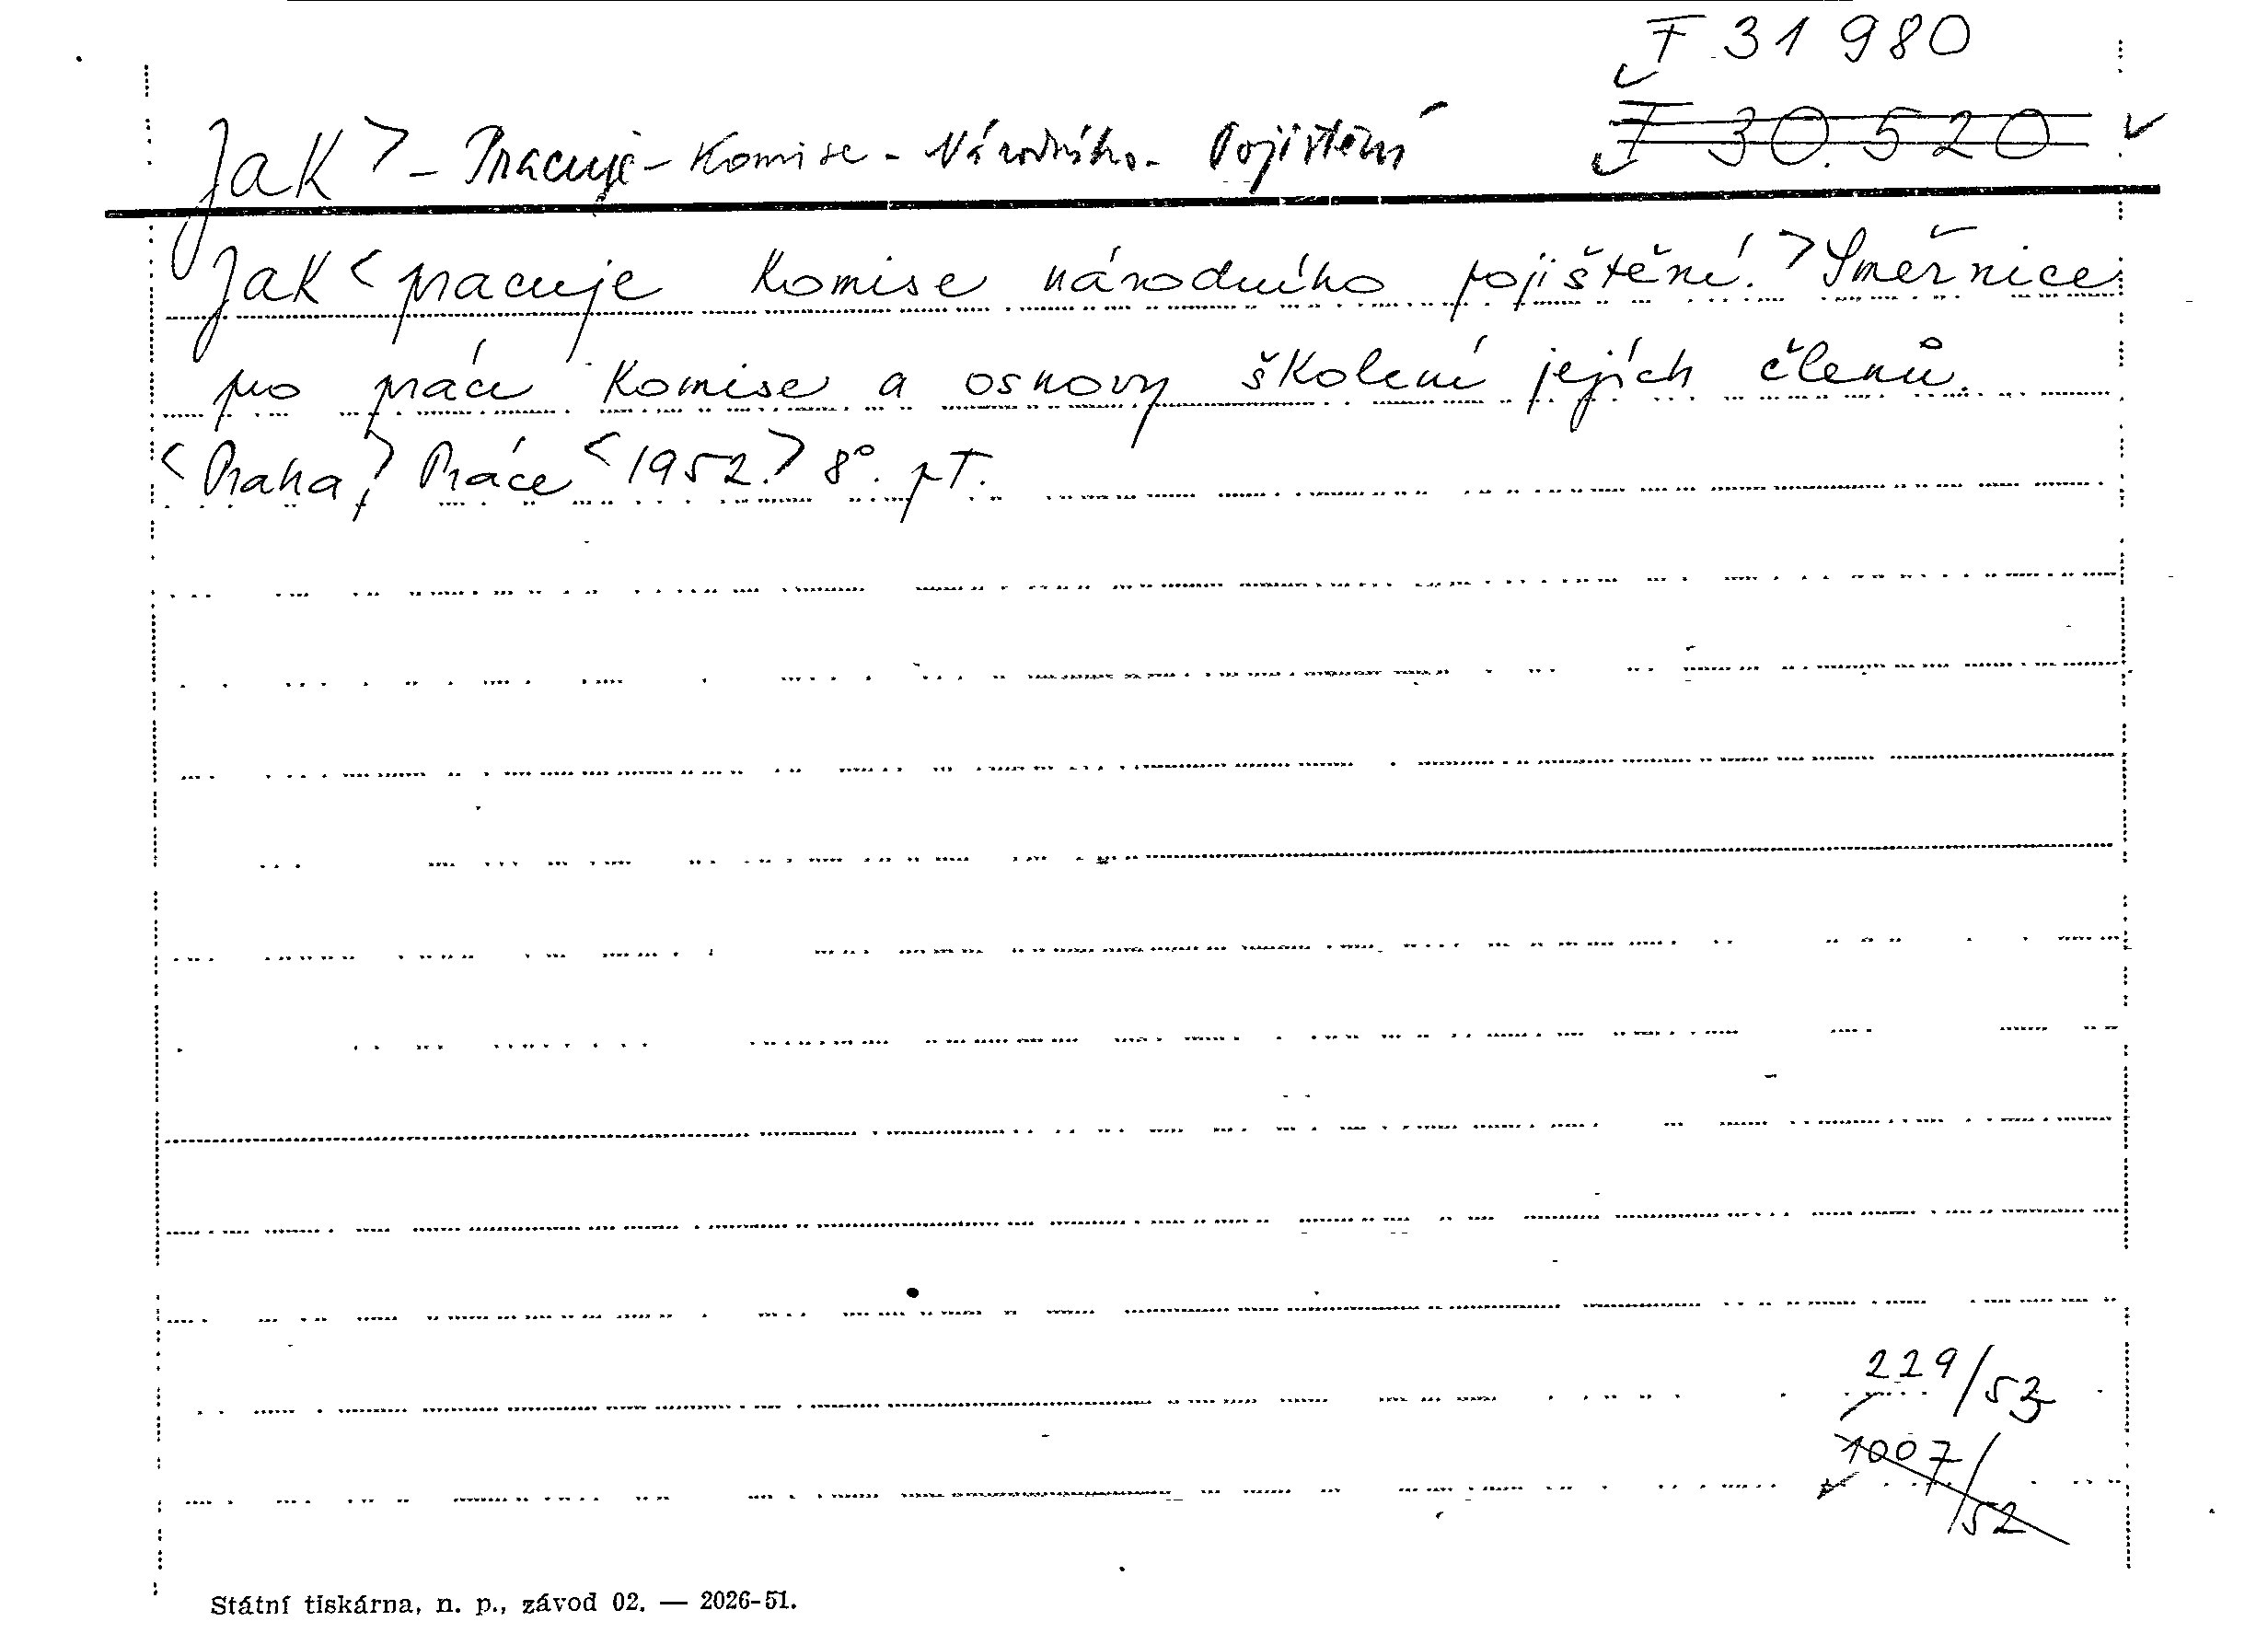 F 31 980
F 30.520
Jak > - Pracuje - Komise - Národního - Pojištění
Jak < pracuje komise národního pojištění. > Směrnice
pro práci komise a osnovy školení jejích členů.
< Praha, > Práce < 1952. > 8°. pT.
229/53
1007/52
Státní tiskárna, n. p., závod 02. — 2026-51.